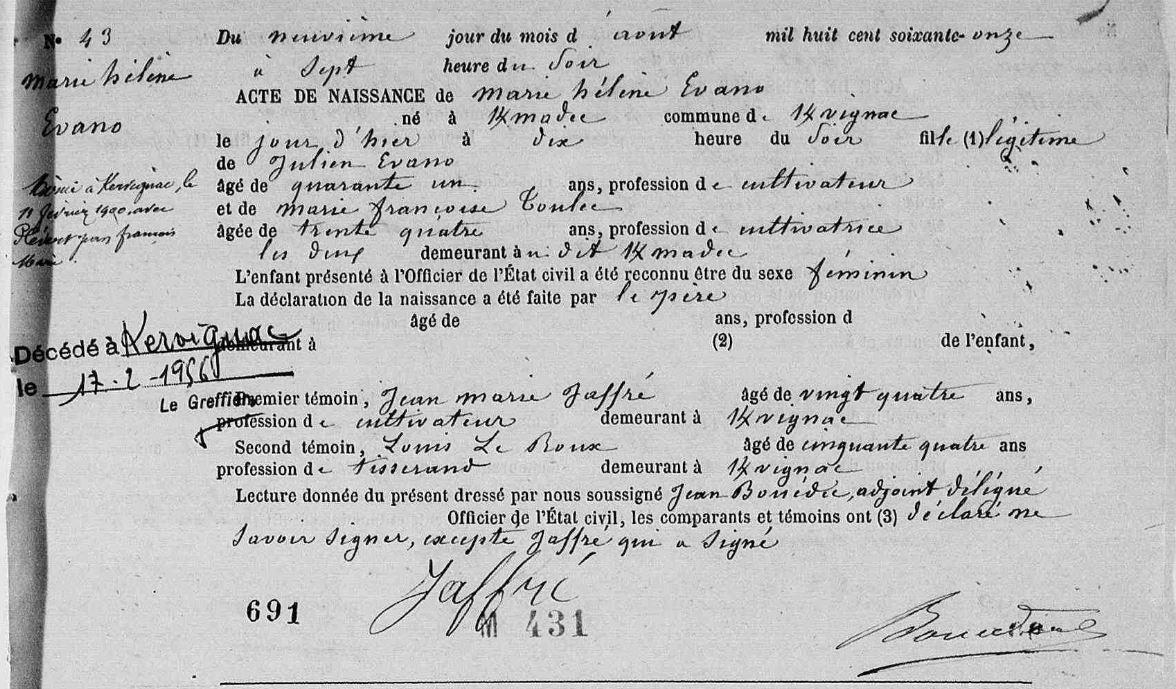 N° 43
marie hélène
Evano
Du neuvième jour du mois d' août mil huit cent soixante-onze
à Sept heure du Soir
ACTE DE NAISSANCE de marie hélène Evano
né à madec commune de vignac
le jour d'hier à dix heure du Soir fille (1) légitime
de Julien Evano
âgé de quarante un ans, profession de cultivateur
et de marie françoise
âgée de trente quatre ans, profession de cultivatrice
les deux demeurant à dit madec
L'enfant présenté à l'Officier de l'État civil a été reconnu être du sexe féminin
La déclaration de la naissance a été faite par le père
âgé de ans, profession d
demeurant à (2) de l'enfant,
Premier témoin, Jean marie Jaffré âgé de vingt quatre ans,
profession de cultivateur demeurant à vignac
Second témoin, Louis Le Roux âgé de cinquante quatre ans
profession de tisserand demeurant à vignac
Lecture donnée du présent dressé par nous soussigné Jean adjoint délégué
Officier de l'État civil, les comparants et témoins ont (3) déclaré ne
Savoir Signer, excepté Jaffré qui a Signé
Jaffré
à Kervignac, le
11 février 1900, avec
françois
Décédé à Kervignac
le 17-2-1956
Le Greffier,
691
M 431